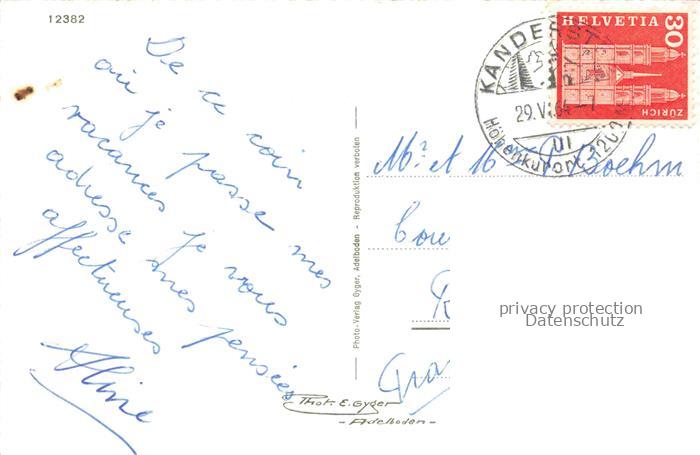 12382
De ce coin
où je passe mes
vacances je vous
adresse mes pensées
affectueuses
Aline
Photo-Verlag Gyger, Adelboden - Reproduktion verboten
Phot. E. Gyger
- Adelboden -
HELVETIA
30
ZÜRICH
KANDERST
29.VI.64-7
Höhenkurort 1200 m
Mr et M Boehm
Cou
privacy protection
Datenschutz